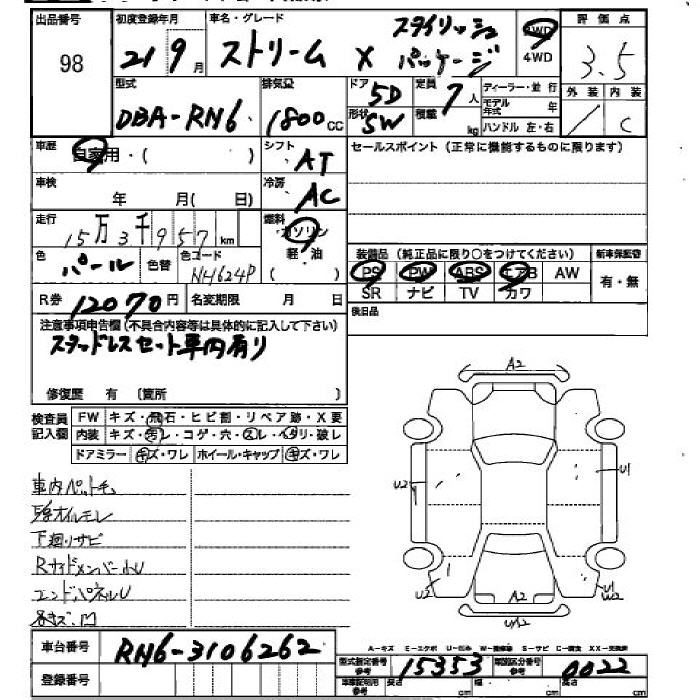 出品番号 初度登録年月 車名・グレード 評価点
98 21 9月 ストリーム X スタイリッシュ パッケージ 2WD 4WD 3.5
型式 排気量 ドア 5D 定員 7人 ディーラー・並行 外装 内装
DBA-RN6 1800cc 形状 SW 積載 kg モデル年式 年 / C
ハンドル 左・右
車歴 自家用・( ) シフト AT セールスポイント (正常に機能するものに限ります)
車検 年 月( 日) 冷房 AC
走行 15万3千957km 燃料 ガソリン
色 パール 色替 色コード NH624P 軽・油 装備品 (純正品に限り○をつけてください) 新車保証書
PS PW ABS エアB AW 有・無
R券 12070円 名変期限 月 日 SR ナビ TV カワ
注意事項申告欄 (不具合内容等は具体的に記入して下さい) 後日品
スタッドレスセット車内有り
修復歴 有 〔箇所 〕
検査員 FW キズ・飛石・ヒビ割・リペア跡・X要
記入欄 内装 キズ・汚レ・コゲ・穴・スレ・ヘタリ・破レ
ドアミラー キズ・ワレ ホイール・キャップ キズ・ワレ
A2
U2 U1
車内ペット毛
下廻りサビ
Rサイドメンバー小U
エンドパネルU
U2 A2 U1
W2
各キズ凹 UA2
車台番号 RN6-3106262 A-キズ E-エクボ U-凹み W-補修跡 S-サビ C-腐食 XX-交換済
型式指定番号 参考 15353 類別区分番号 参考 0022
登録番号 車庫証明用 参考 長さ cm 幅 cm 高さ cm